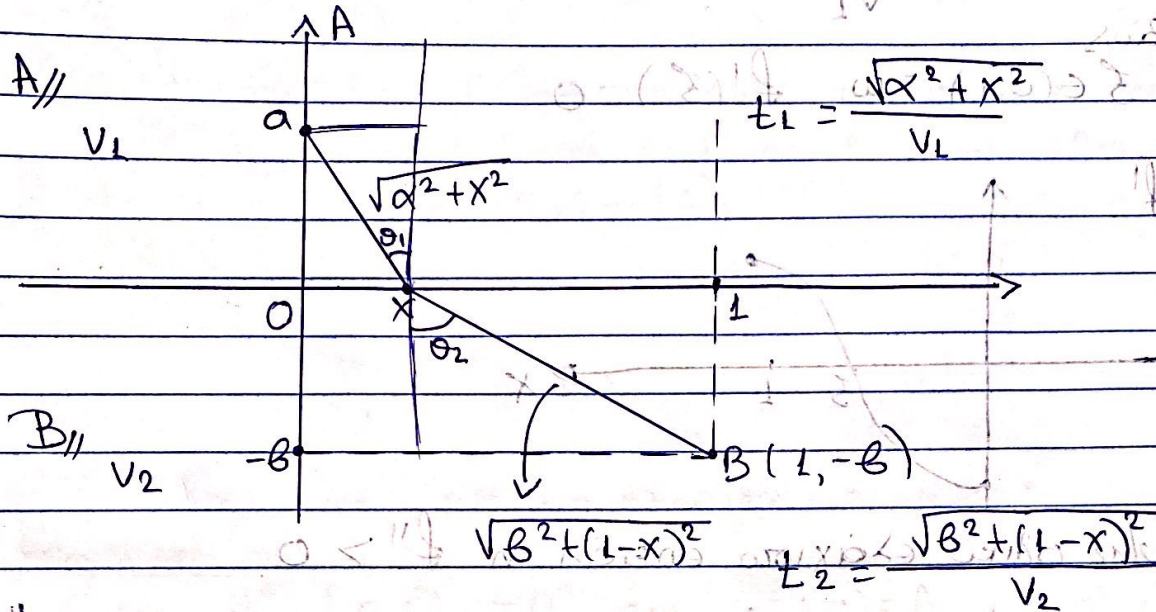 A
A//
a
t₁ = √(α² + x²) / V₁
V₁
√(α² + x²)
θ₁
0
x
1
θ₂
B//
V₂
-β
B (1, -β)
√(β² + (1-x)²)
t₂ = √(β² + (1-x)²) / V₂